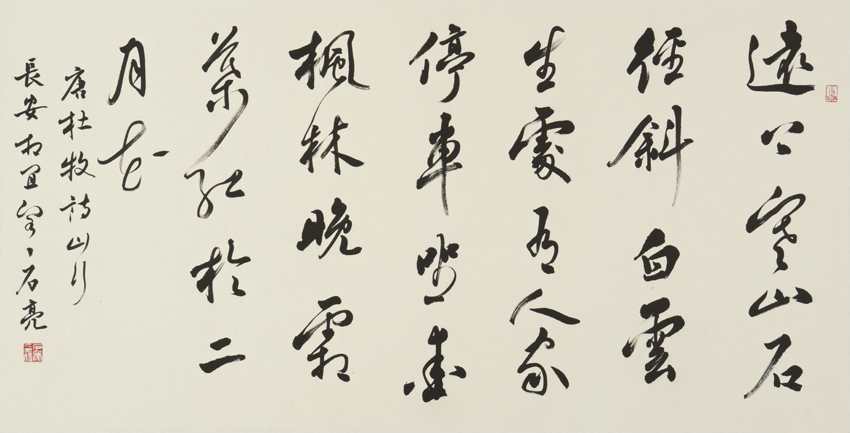 遠上寒山石
徑斜白雲
生處有人家
停車坐愛
楓林晚霜
葉紅於二
月花
唐杜牧詩山行
長安 石亮